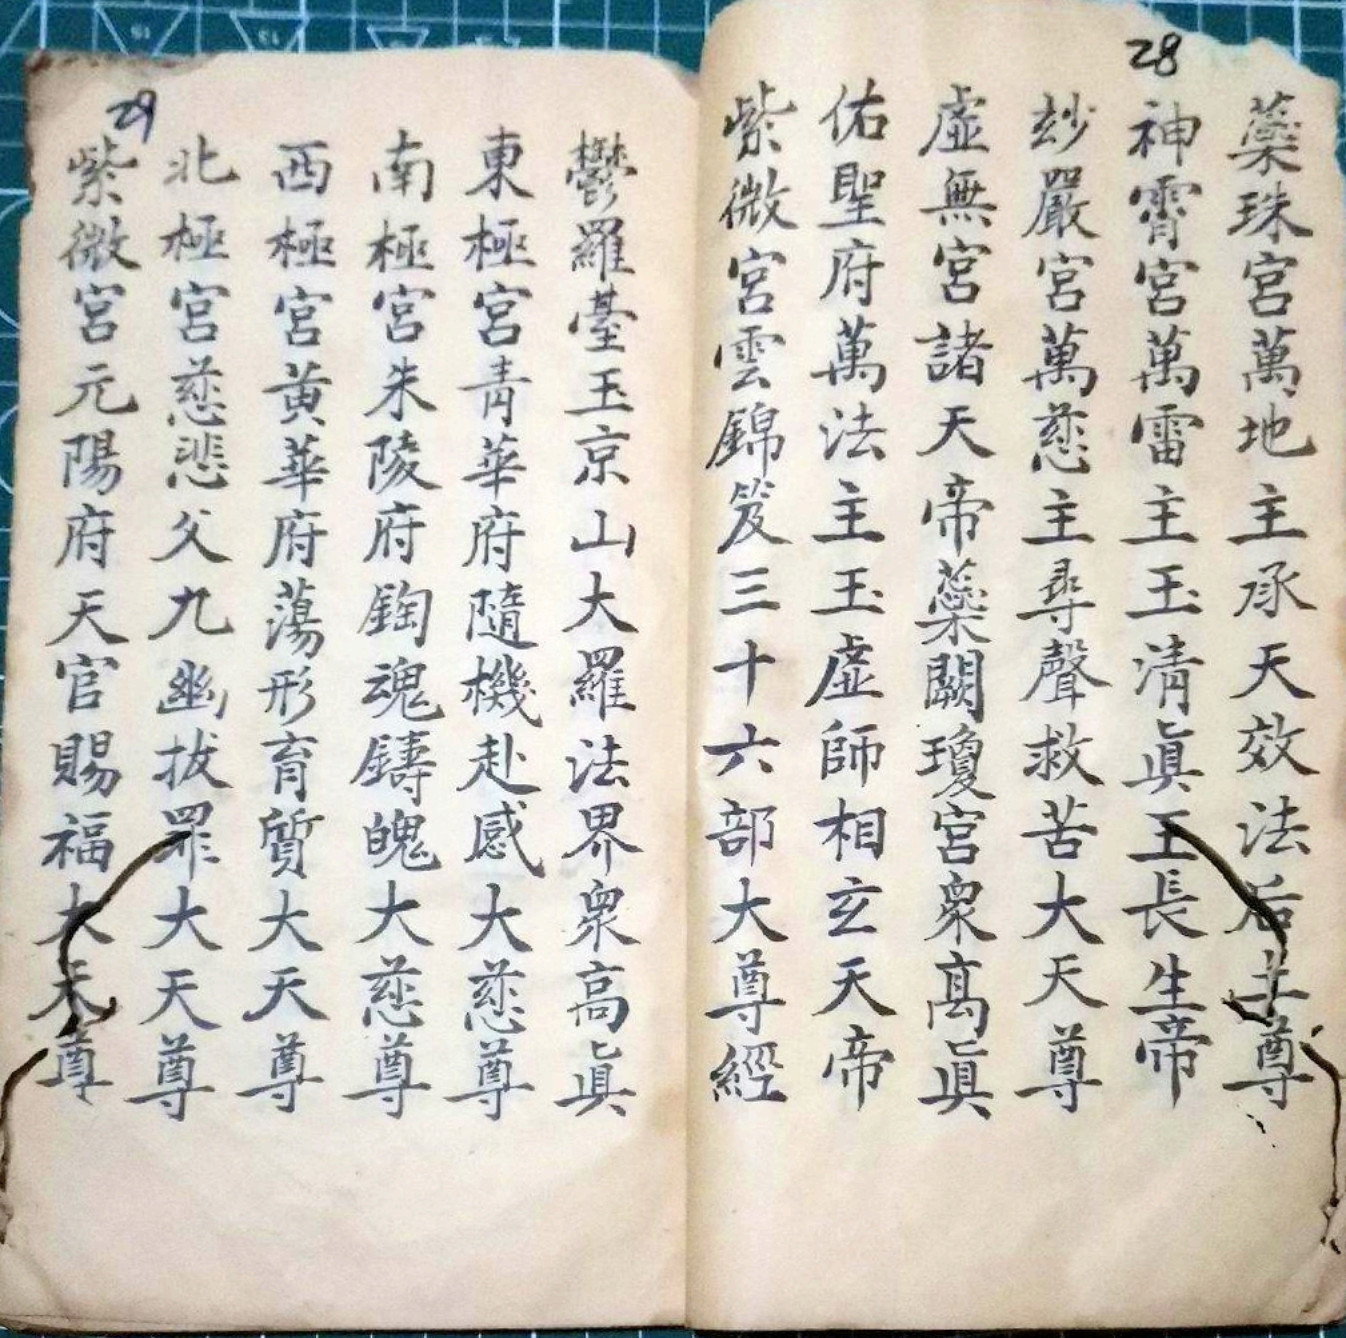 28
蘂珠宮萬地主承天效法后土尊
神霄宮萬雷主玉清眞王長生帝
玅嚴宮萬慈主尋聲救苦大天尊
虛無宮諸天帝蘂闕瓊宮衆髙眞
佑聖府萬法主玉虛師相玄天帝
紫微宮雲錦笈三十六部大尊經
29
鬱羅臺玉京山大羅法界衆高眞
東極宮青華府隨機赴感大慈尊
南極宮朱陵府鋾魂鑄魄大慈尊
西極宮黃華府蕩形育質大天尊
北極宮慈悲父九幽拔罪大天尊
紫微宮元陽府天官賜福大天尊